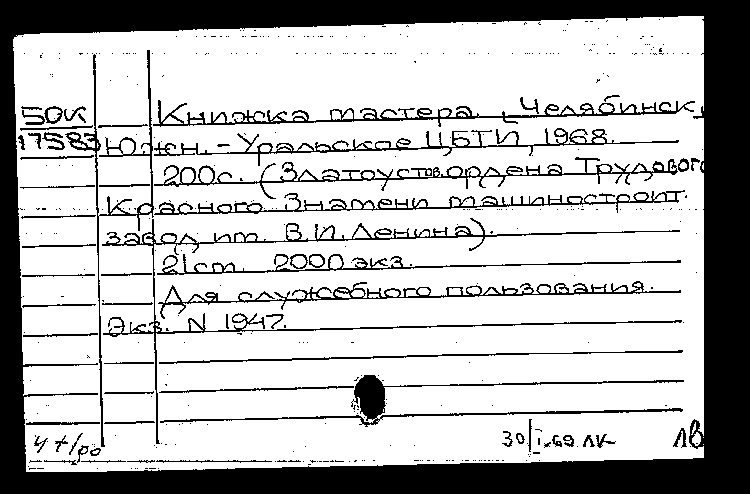 50К
17583
Книжка мастера. [Челябинск,
Южн.-Уральское ЦБТИ, 1968.
200с. (Златоустов.ордена Трудового
Красного Знамени машиностроит.
завод им. В.И.Ленина).
21см. 2000экз.
Для служебного пользования.
Экз. N 1947.
30/I-69 ЛК ЛВ